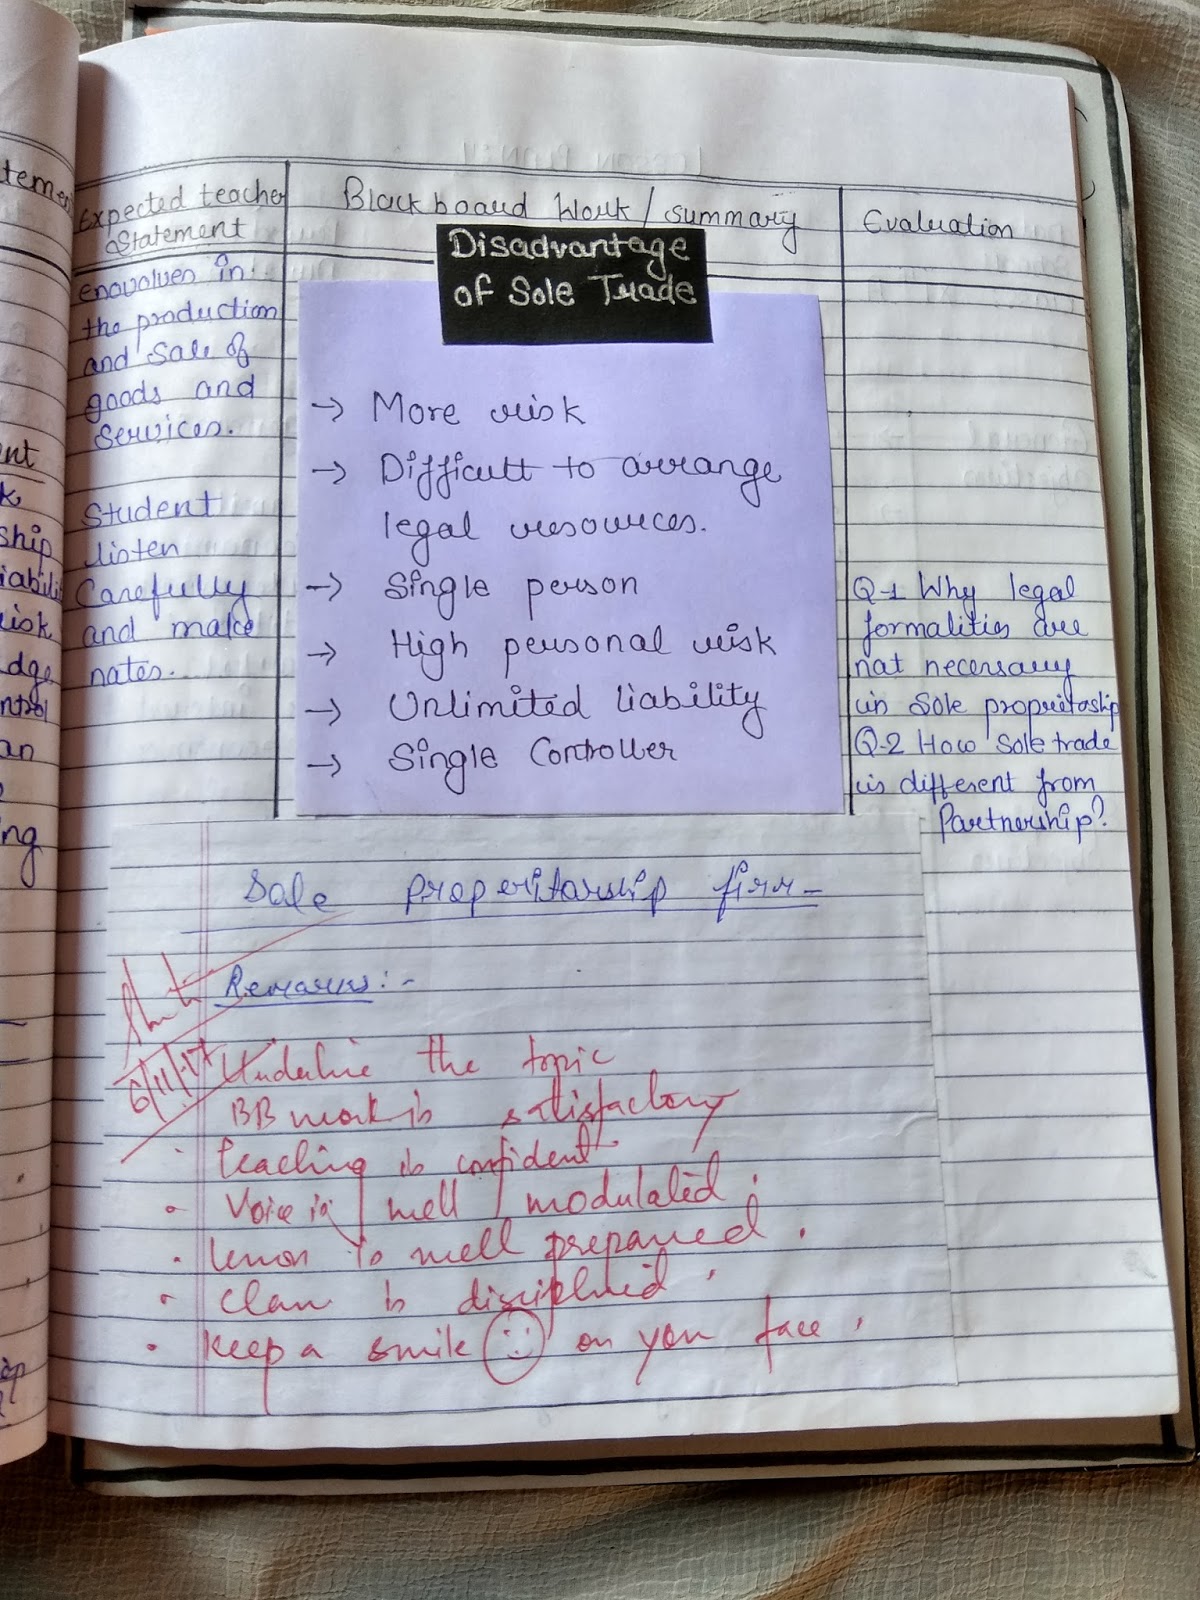 Expected teacher
Statement
enavolves in
the production
and Sale of
goods and
Services.
Student
listen
Carefully
and make
nates.
Blackboard Work / summary
Disadvantage
of Sole Trade
→ More risk
→ Difficult to arrange
legal resources.
→ Single person
→ High personal risk
→ Unlimited liability
→ Single Controller
Evaluation
Q-1 Why legal
formalities are
nat necessary
in Sole proprietaship
Q-2 How Sole trade
is different from
Partnership?
Sale properitarship firm-
Remarks:-
6/11/17
Underline the topic
BB work is satisfactory
· teaching is confident
· Voice is well modulated.
· lesson is well prepared.
· class is disciplined.
· Keep a smile on your face.
nt
k
ship
iabilit
isk
dge
ntrol
an
ing